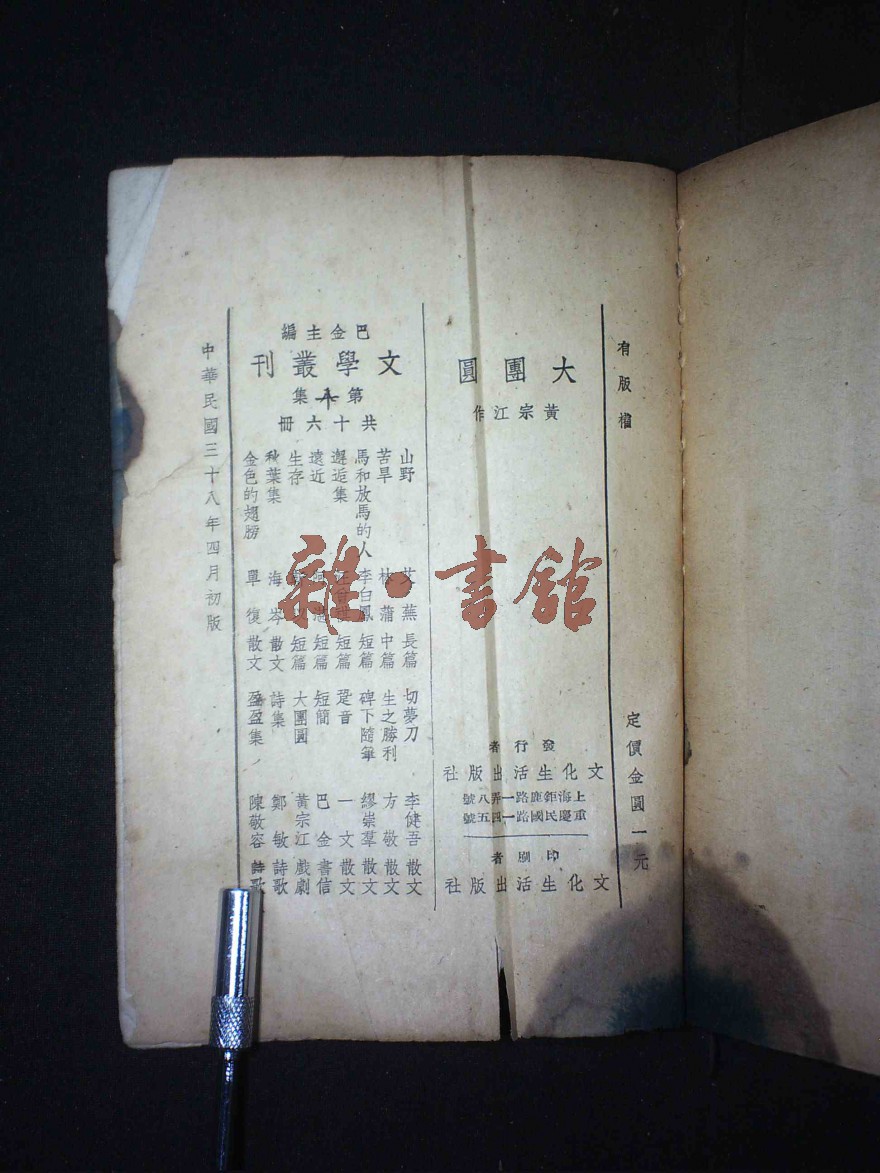 有版權
定價金圓一元
大團圓
黃宗江作
發行者
文化生活出版社
上海鉅鹿路一弄八號
重慶民國路一四五號
印刷者
文化生活出版社
巴金主編
文學叢刊
第十集
共十六冊
山野 艾蕪 長篇
苦旱 林蒲 中篇
馬和放馬的人 李白鳳 短篇
邂逅集 汪曾祺 短篇
遠近 阿湛 短篇
生存 短篇
秋葉集 海岑 散文
金色的翅膀 單復 散文
切夢刀 李健吾 散文
生之勝利 方敬 散文
碑下隨筆 繆崇羣 散文
跫音 一文 散文
短簡 巴金 書信
大團圓 黃宗江 戲劇
詩集 鄭敏 詩歌
盈盈集 陳敬容 詩歌
中華民國三十八年四月初版
雜·書館